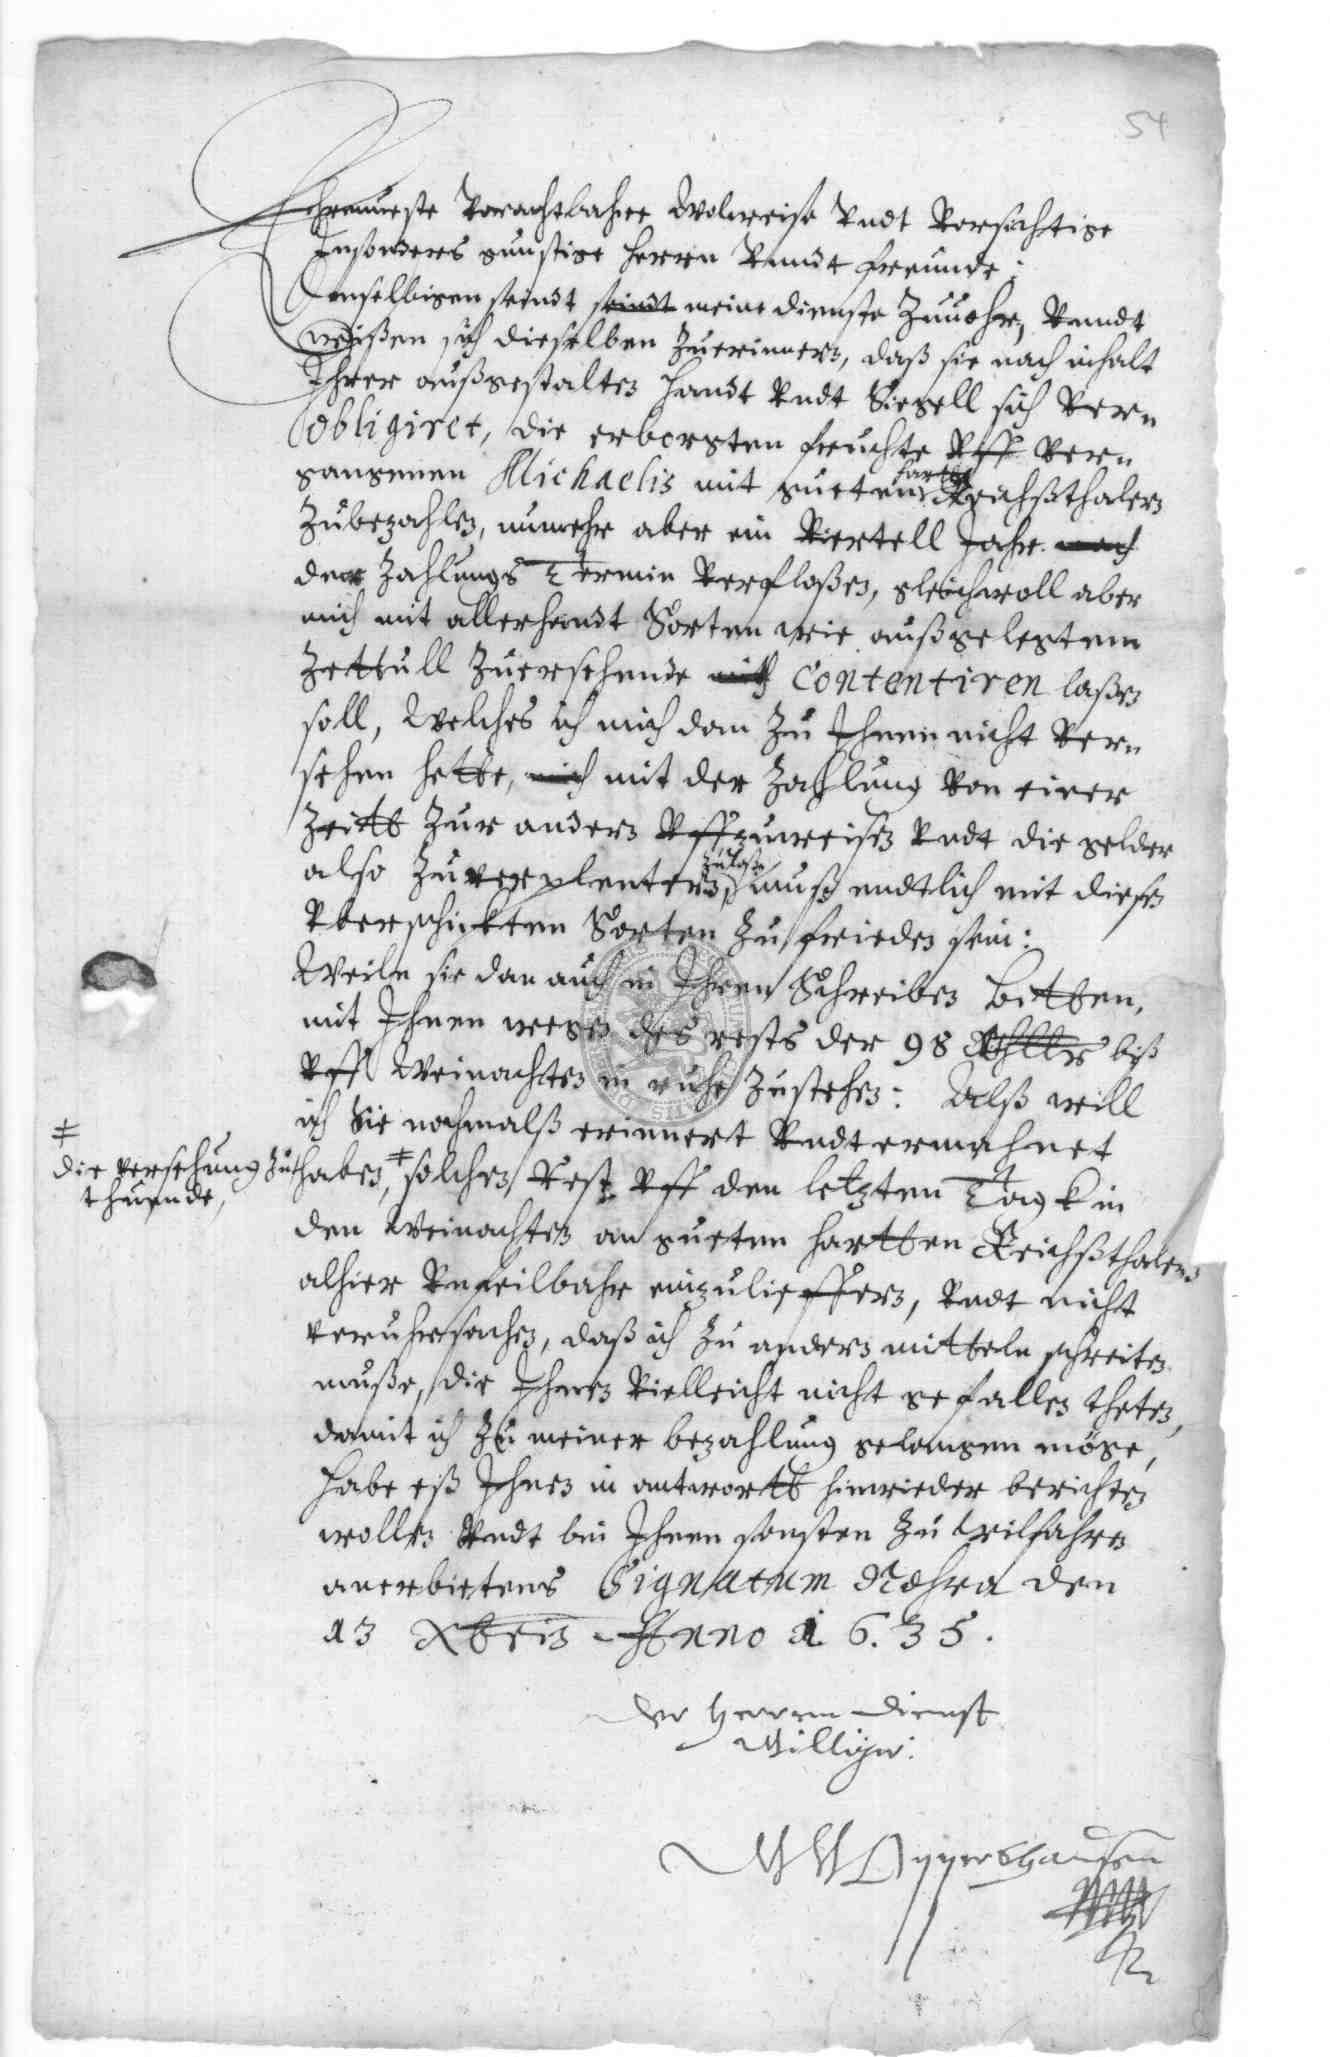 54
Ehrnueste Vorachtbahre Wolweise Vndt Vorsichtige
Insonders gunstige Herrn Vnndt freunde;
Denselbigen seindt seindt meine dienste Zuuohr, Vnndt
wißen sich dieselben Zuerinnern, daß sie nach inhalt
Ihrer außgestalten Handt Vndt Siegell sich Ver-
obligiret, die erborgten fruchte Vff Ver-
gangenen Michaelis mit gueten harten Reichßthalern
Zubezahlen, nunmehr aber ein Viertell Jahr nach
der Zahlungs Termin Verfloßen, gleichwoll aber
mich mit allerhandt Sorten wie außgelegtem
Zettull Zuersehende mich Contentiren laßen
soll, Welches ich mich dan Zu Ihnen nicht Ver-
sehen hette, mich mit der Zahlung Von einer
Zeitt Zur andern Vffzuweisen Vndt die gelder
also Zuverplentern, Zulaßen muß endtlich mit diesen
Vberschickten Sorten Zufrieden sein:
Weiln sie dan auch in Ihren Schreiben Bitten,
mit Ihnen wegen des rests der 98 Rthllr biß
Vff Weinachten in ruhe Zustehen: Alß will
ich Sie nochmalß erinnert Vndt ermahnet
haben, ‡ solchen Rest Vff den letzten Tagk in
‡
die versehung Zu
thuende,
den Weinachten an gueten hartten Reichßthalern
alhier Vnfeilbahr einzulieffern, Vndt nicht
veruhrsachen, daß ich Zu andern mitteln schreiten
muße, die Ihnen Vielleicht nicht gefallen theten,
damit ich Zu meiner bezahlung gelangen möge,
Habe eß Ihnen in antwortt hinwieder berichten
wollen Vndt bin Ihnen sonsten Zu Wilfahren
anerbietens Signatum Nohra den
13 Xbris Anno 1635.
Der Herren Dienst
Williger
Oppershausen